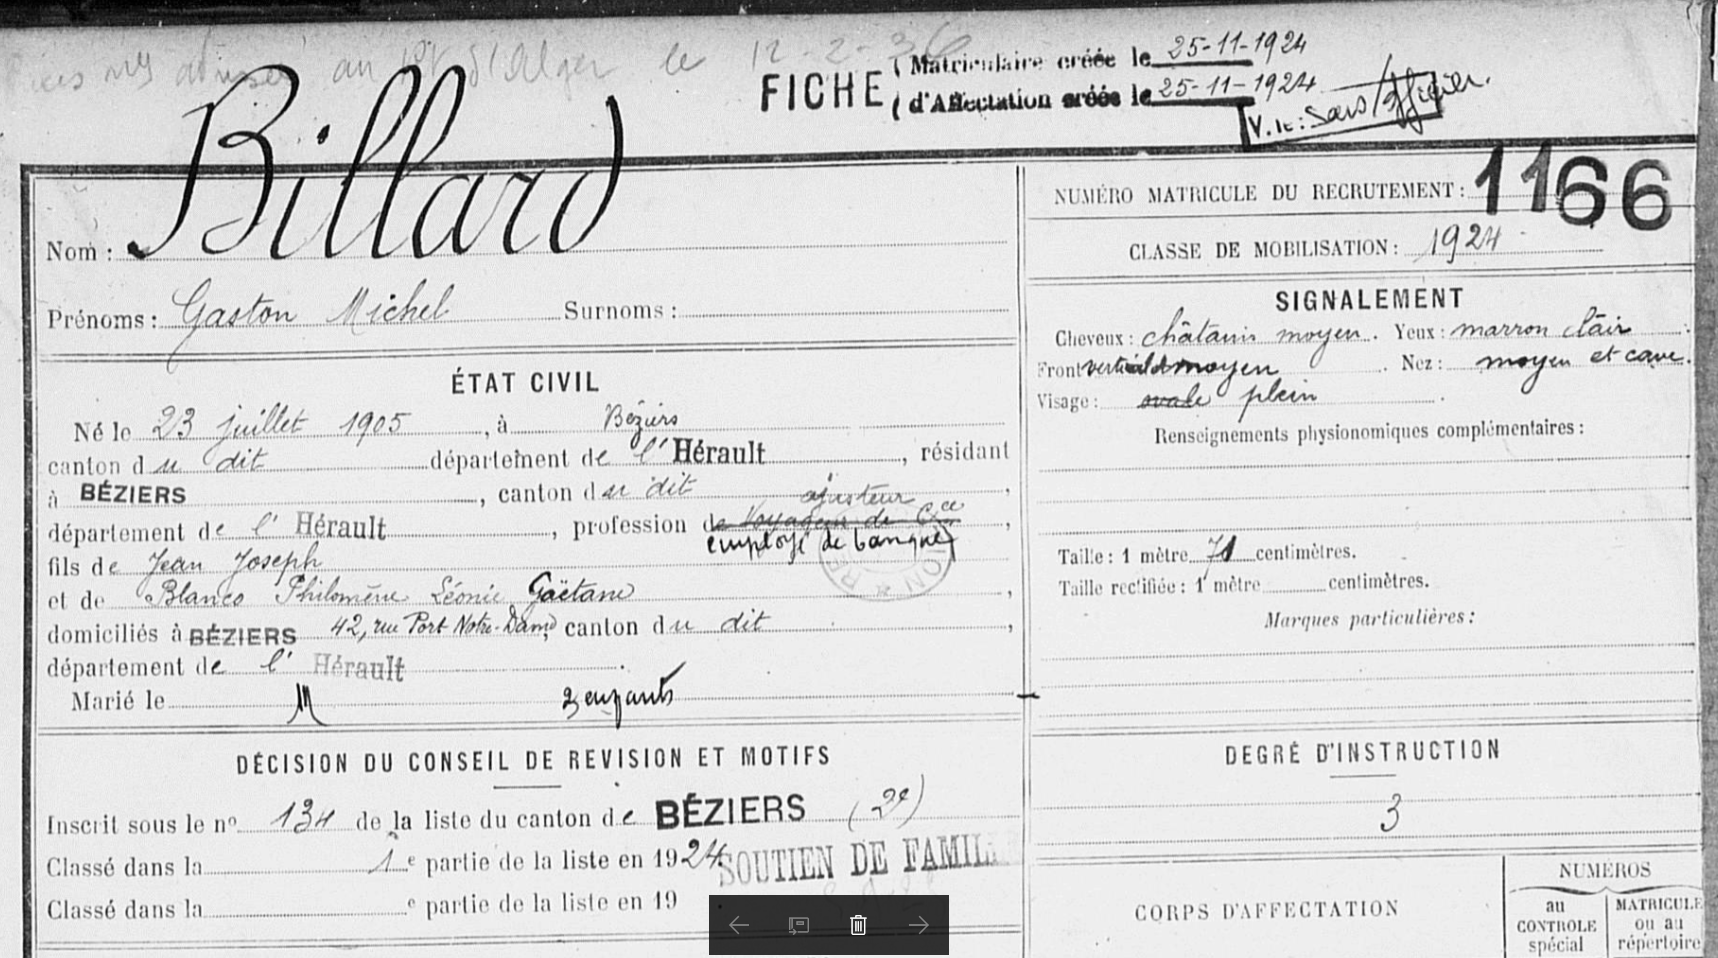 au d'Alger le 12-2-36
FICHE ( Matriculaire créée le 25-11-1924
( d'Affectation créée le 25-11-1924
V. le: Sous/officier.
Nom : Billard
Prénoms : Gaston Michel Surnoms :
ÉTAT CIVIL
Né le 23 juillet 1905, à Béziers
canton du dit département de l'Hérault, résidant
à BÉZIERS, canton du dit,
ajusteur
département de l'Hérault, profession de Voyageur de Cce,
employé de banque
fils de Jean Joseph
et de Blanco Philomène Léonie Gaëtane,
domiciliés à BÉZIERS 42, rue Port Notre-Dame, canton du dit,
département de l'Hérault.
Marié le M 2 enfants
DÉCISION DU CONSEIL DE REVISION ET MOTIFS
Inscrit sous le no 134 de la liste du canton de BÉZIERS (2e)
Classé dans la 1e partie de la liste en 1924
SOUTIEN DE FAMIL
Classé dans la e partie de la liste en 19
NUMÉRO MATRICULE DU RECRUTEMENT : 1166
CLASSE DE MOBILISATION : 1924
SIGNALEMENT
Cheveux : châtain moyen. Yeux : marron clair
Front vertical moyen. Nez : moyen et cave.
Visage : ovale plein.
Renseignements physionomiques complémentaires :
Taille : 1 mètre 71 centimètres.
Taille rectifiée : 1 mètre centimètres.
Marques particulières :
DEGRÉ D'INSTRUCTION
3
CORPS D'AFFECTATION
NUMÉROS
au CONTROLE spécial
MATRICULE ou au répertoire